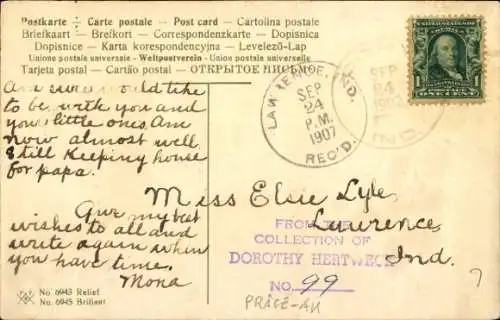 Postkarte - Carte postale - Post card - Cartolina postale
Briefkaart - Brefkort - Correspondenzkarte - Dopisnice
Dopisnice - Karta korespondencyjna - Levelező-Lap
Unione postale universale - Weltpostverein - Union postale universelle
Tarjeta postal - Cartão postal - ОТКРЫТОЕ ПИСЬМОЕ
Am sure would like
to be with you and
your little ones. Am
now almost well
Still Keeping house
for papa.
Give my best
wishes to all and
write again when
you have time.
Mona
No. 6943 Relief
No. 6945 Brillant
LAWRENCE, IND.
SEP
24
P.M.
1907
REC'D.
SEP
24
1907
IND.
1
ONE CENT
Miss Elsie Lyle,
Lawrence,
Ind.
FROM THE
COLLECTION OF
DOROTHY HERTWECK
NO. 99
7